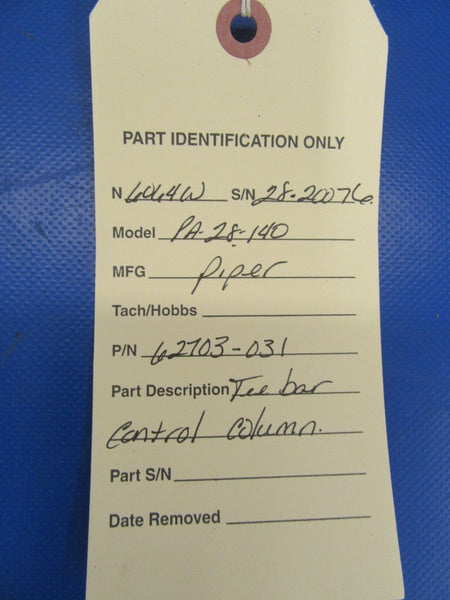 PART IDENTIFICATION ONLY
N 6064W S/N 28-20076
Model PA-28-140
MFG Piper
Tach/Hobbs
P/N 62703-031
Part Description Tee bar
control column.
Part S/N
Date Removed